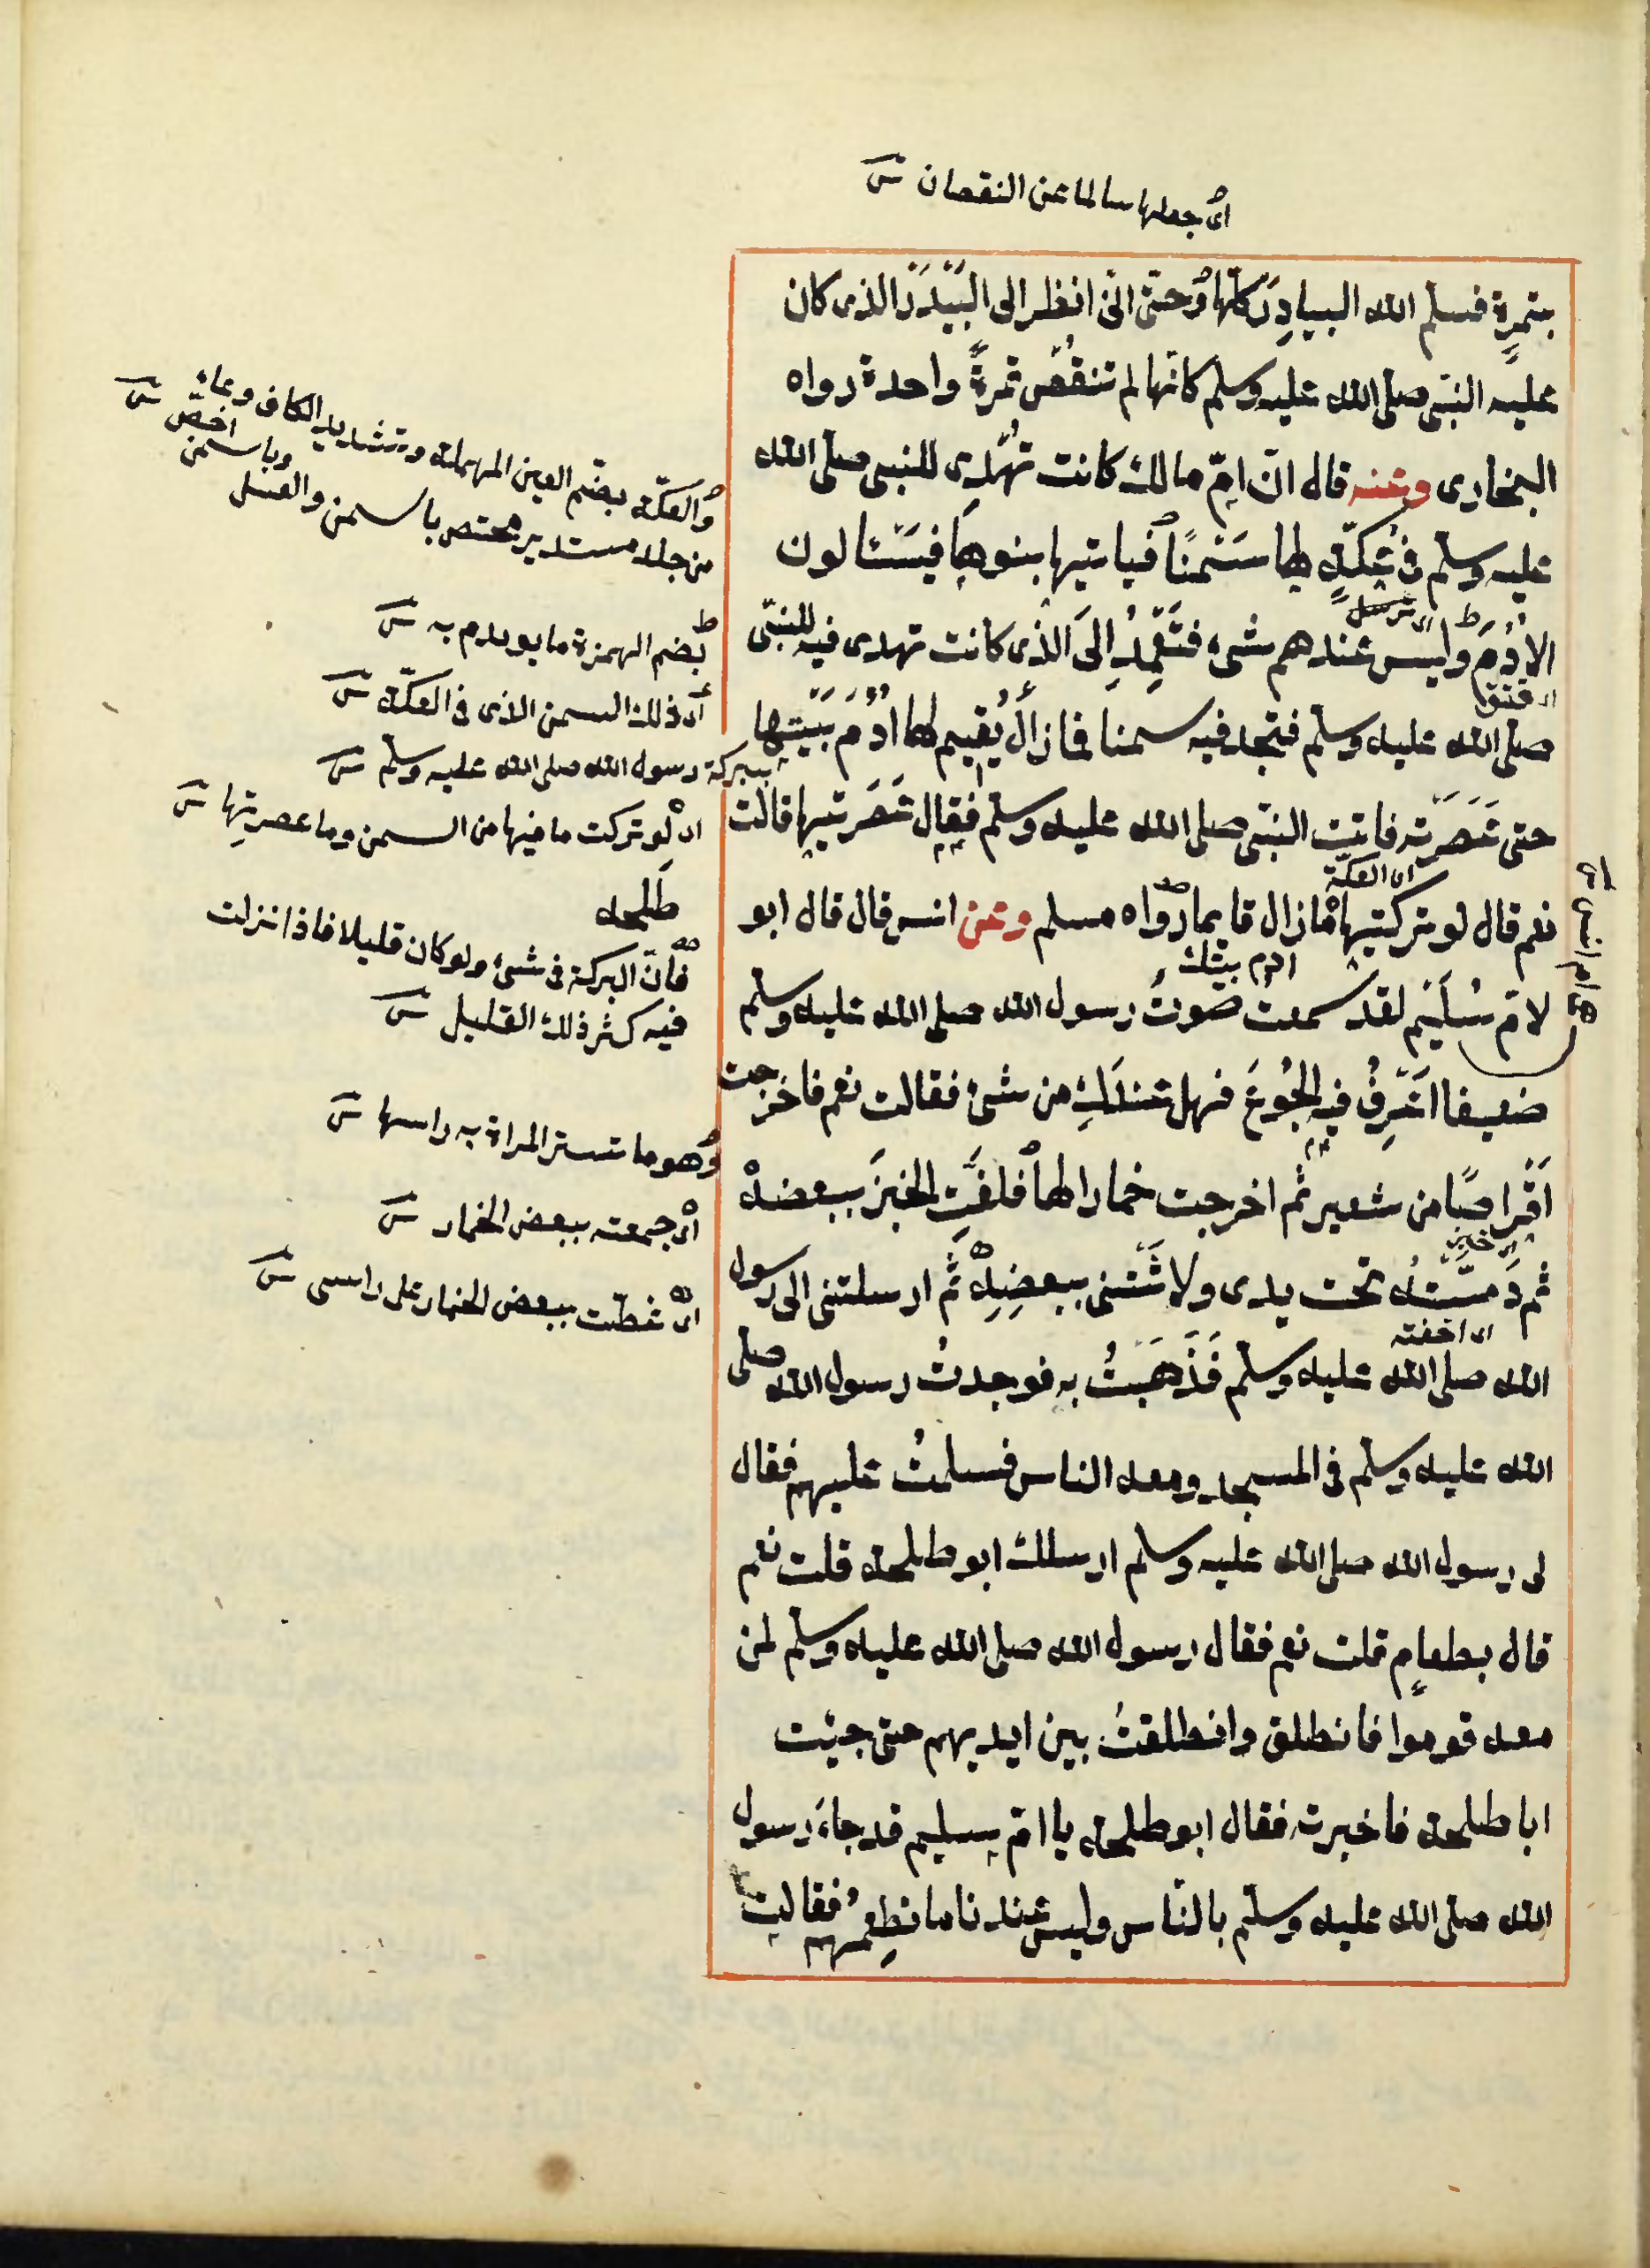 اى جعلها سالما عن النقصان ش
بتمرةٍ فسلم الله البيادِرَ كلّها وحتى انّى انظر الى البَيْدَرَ الذى كان
عليه النبّى صلى الله عليه وسلم كانّها لم تنقُصْ تمرةً واحدة رواه
البخارى وعنه قال انّ امّ مالك كانت تُهْدِى للنبى صلى الله
عليه وسلم فى عُكّةٍ لها سَمْنًا فياتيها بنوها فيَسْئالون
اى ترسل
الاُدُمَ وليس عندهم شىء فتَعْمِدُ الى الذى كانت تهدى فيه للنبّى
صلى الله عليه وسلم فتجد فيه سمنا فما زال يُقيم لها اُدُمَ بَيْتِها
حتى عَصَرَته فاتت النبّى صلى الله عليه وسلم فقال عَصَرتيها قالت
اى العكّة
نعم قال لو تركتيها ما زال قايما رواه مسلم وعن انس قال قال ابو
ادم بيتك
لامّ سُلَيْم لقد سمعت صوتَ رسول الله صلى الله عليه وسلم
ضعيفا اعْرِفُ فيه الجُوعَ فهل عندَكِ من شىء فقالت نعم فاخرجت
اَقْراصًا من شعير ثم اخرجت خمارا لها فلفَّتِ الخبزَ ببعضه
اى خبز
ثم دَسَّتْهُ تحت يدى ولاثَتْنى ببعضِهِ ثم ارسلتنى الى رسول
اى اخفته
الله صلى الله عليه وسلم فَذَهَبْتُ به فوجدتُ رسول الله صلى
الله عليه وسلم فى المسجد ومعه الناس فسلمتُ عليهم فقال
لى رسول الله صلى الله عليه وسلم ارسلك ابو طلحة قلت نعم
قال بطعامٍ قلت نعم فقال رسول الله صلى الله عليه وسلم لمن
معه قوموا فانطلق وانطلقتُ بين ايديهم حتى جيئت
ابا طلحة فاخبرته فقال ابو طلحة يا امّ سليم قد جاءَ رسول
الله صلى الله عليه وسلم بالنّاس وليس عندنا ما نطعِمهم فقالت
والعكّة بضم العين المهملة وتشديد الكاف وعاء
من جلد مستدير مختص بالسمن والعسل
وبالسمن
اخصّ ش
بضم الهمزة ما يودم به ش
اى ذلك السمن الذى فى العكّة ش
ببركة رسول الله صلى الله عليه وسلم ش
اى لو تركت ما فيها من السمن وما عصرتِها ش
طلحه
فانّ البركة فى شىء ولو كان قليلا فاذا نزلت
فيه كثر ذلك القليل ش
وهو ما تستر المراة به راسها ش
اى جمعته ببعض الخمار ش
اى غطّت ببعض الخمار على راسى ش